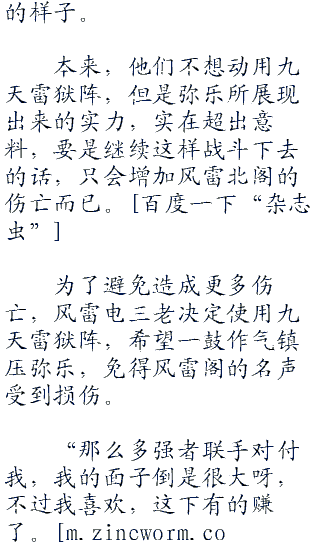 的样子。
本来，他们不想动用九
天雷狱阵，但是弥乐所展现
出来的实力，实在超出意
料，要是继续这样战斗下去
的话，只会增加风雷北阁的
伤亡而已。[百度一下“杂志
虫”]
为了避免造成更多伤
亡，风雷电三老决定使用九
天雷狱阵，希望一鼓作气镇
压弥乐，免得风雷阁的名声
受到损伤。
“那么多强者联手对付
我，我的面子倒是很大呀，
不过我喜欢，这下有的赚
了。[m.zincworm.co